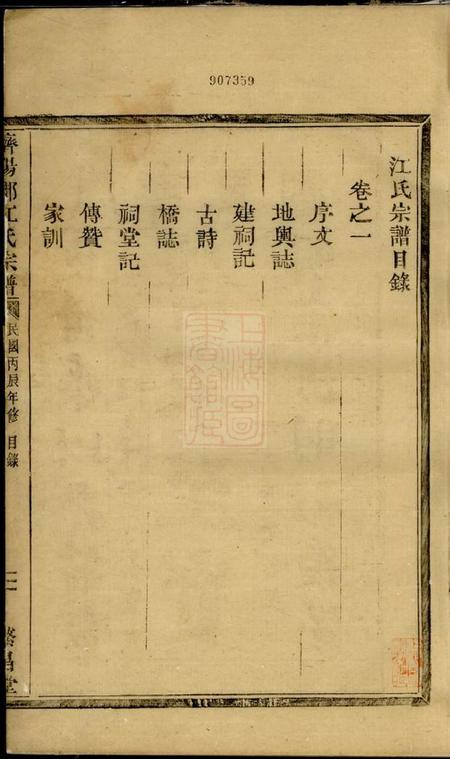 907359
江氏宗譜目錄
卷之一
序文
地輿誌
建祠記
古詩
橋誌
祠堂記
傳贊
家訓
濟陽郡江氏宗譜
民國丙辰年修 目錄
上海圖書館藏